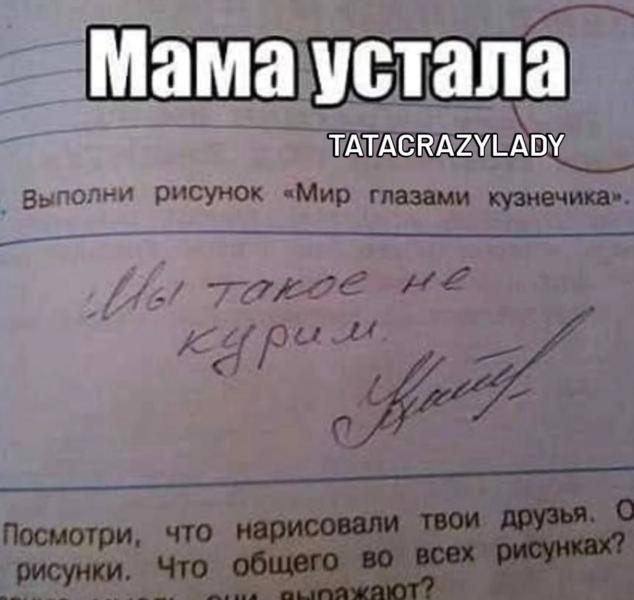 Мама устала
TATACRAZYLADY
Выполни рисунок «Мир глазами кузнечика».
Мы такое не
курим.
Посмотри, что нарисовали твои друзья. О
рисунки. Что общего во всех рисунках?
они выражают?